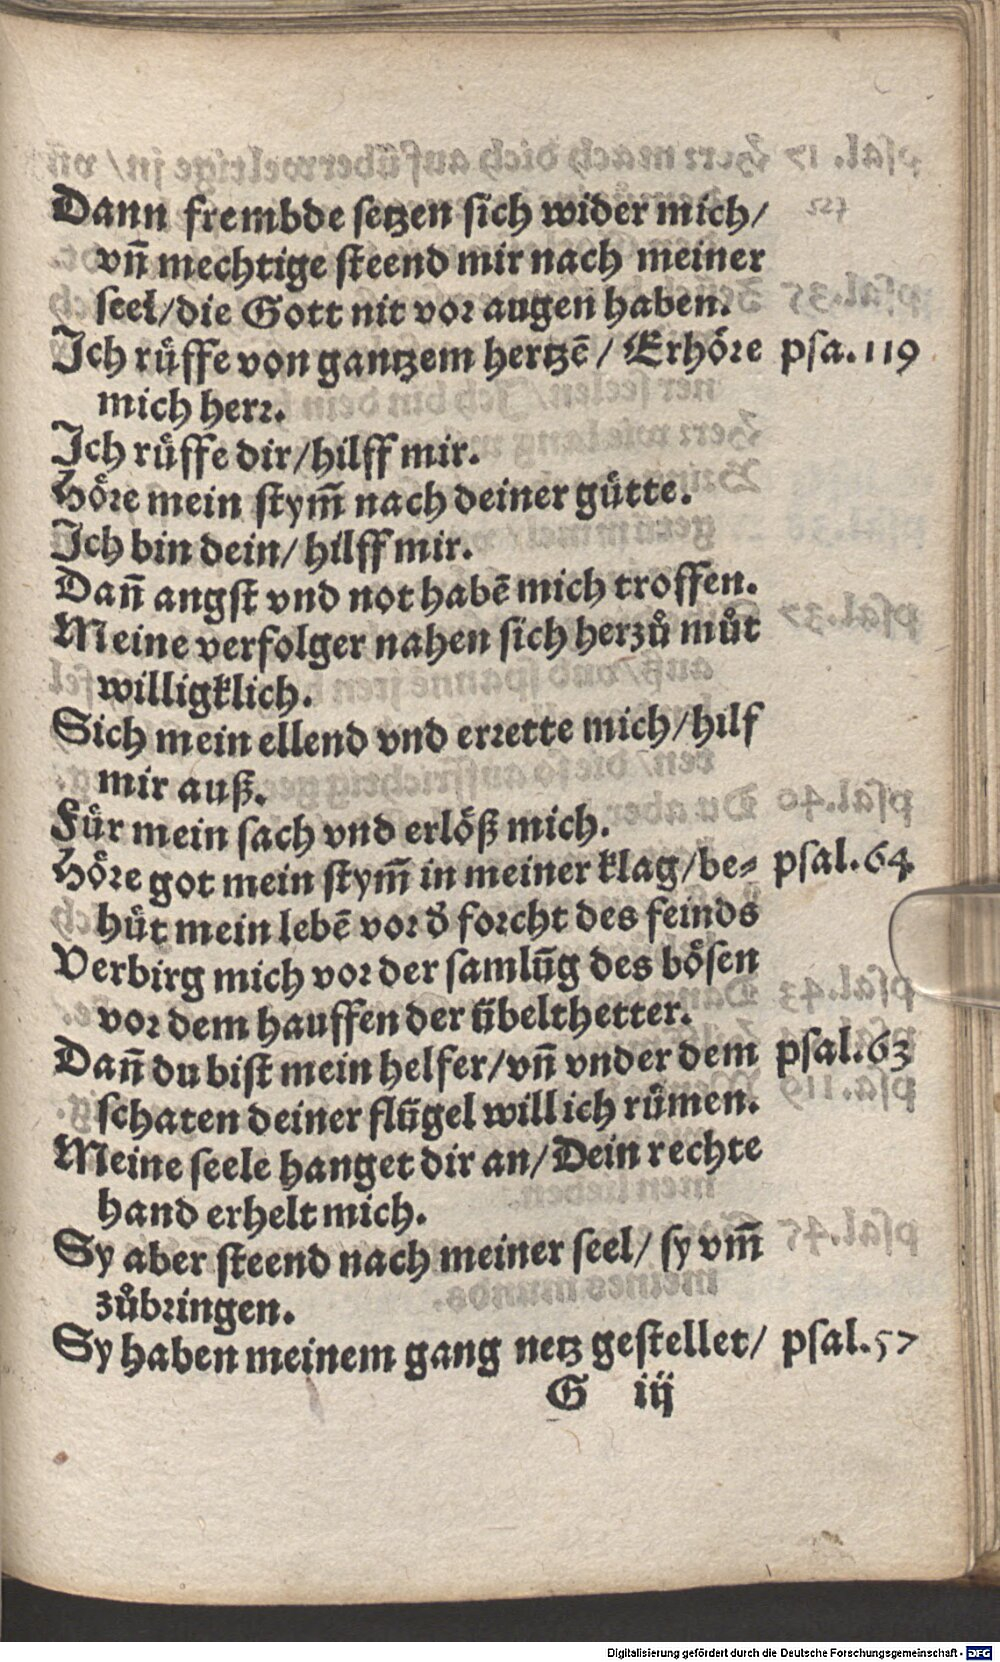 Dann frembde setzen sich wider mich/
vñ mechtige steend mir nach meiner
seel/die Gott nit vor augen haben.
Ich růffe von gantzem hertzẽ / Erhöre psa.119
mich herr.
Ich růffe dir/hilff mir.
Höre mein stym̃ nach deiner gůtte.
Ich bin dein/hilff mir.
Dañ angst vnd not habẽ mich troffen.
Meine verfolger nahen sich herzů můt
willigklich.
Sich mein ellend vnd errette mich/hilf
mir auß.
Für mein sach vnd erlöß mich.
Höre got mein stym̃ in meiner klag/be⸗ psal.64
hüt mein lebẽ vor d̕ forcht des feinds
Verbirg mich vor der samlũg des bösen
vor dem hauffen der übelthetter.
Dañ du bist mein helfer/vñ vnder dem psal.63
schaten deiner flügel will ich rümen.
Meine seele hanget dir an/Dein rechte
hand erhelt mich.
Sy aber steend nach meiner seel/ sy vm̃
zůbringen.
Sy haben meinem gang netz gestellet/ psal.57
G iij
Digitalisierung gefördert durch die Deutsche Forschungsgemeinschaft - DFG